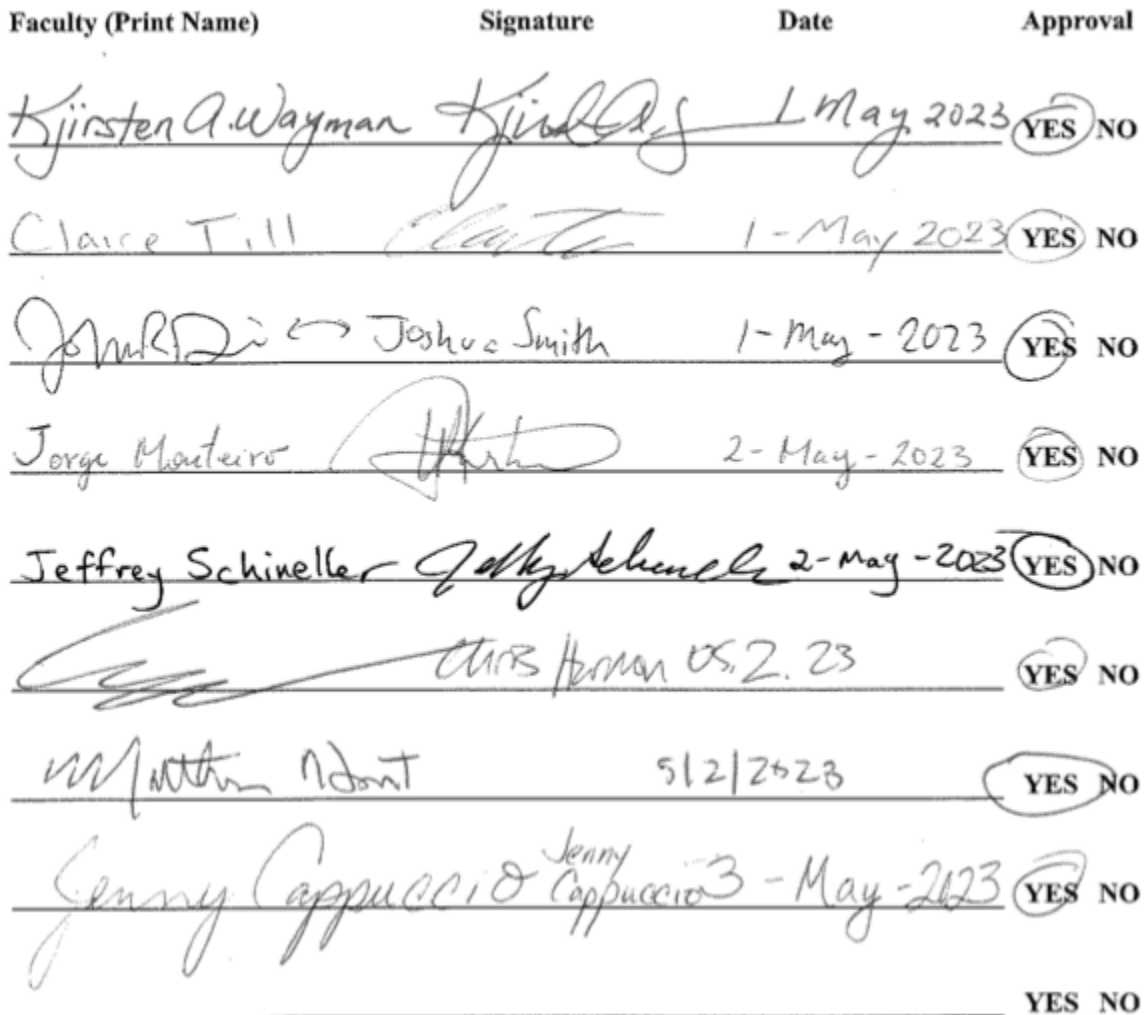 Faculty (Print Name) Signature Date Approval
Kjirsten A. Wayman 1 May 2023 YES NO
Claire Till 1-May 2023 YES NO
Joshua Smith 1-May-2023 YES NO
Jorge Monteiro 2-May-2023 YES NO
Jeffrey Schineller 2-May-2023 YES NO
Chris Harmon 05.2.23 YES NO
Matthew 5/2/2023 YES NO
Jenny Cappuccio Jenny Cappuccio 3-May-2023 YES NO
YES NO